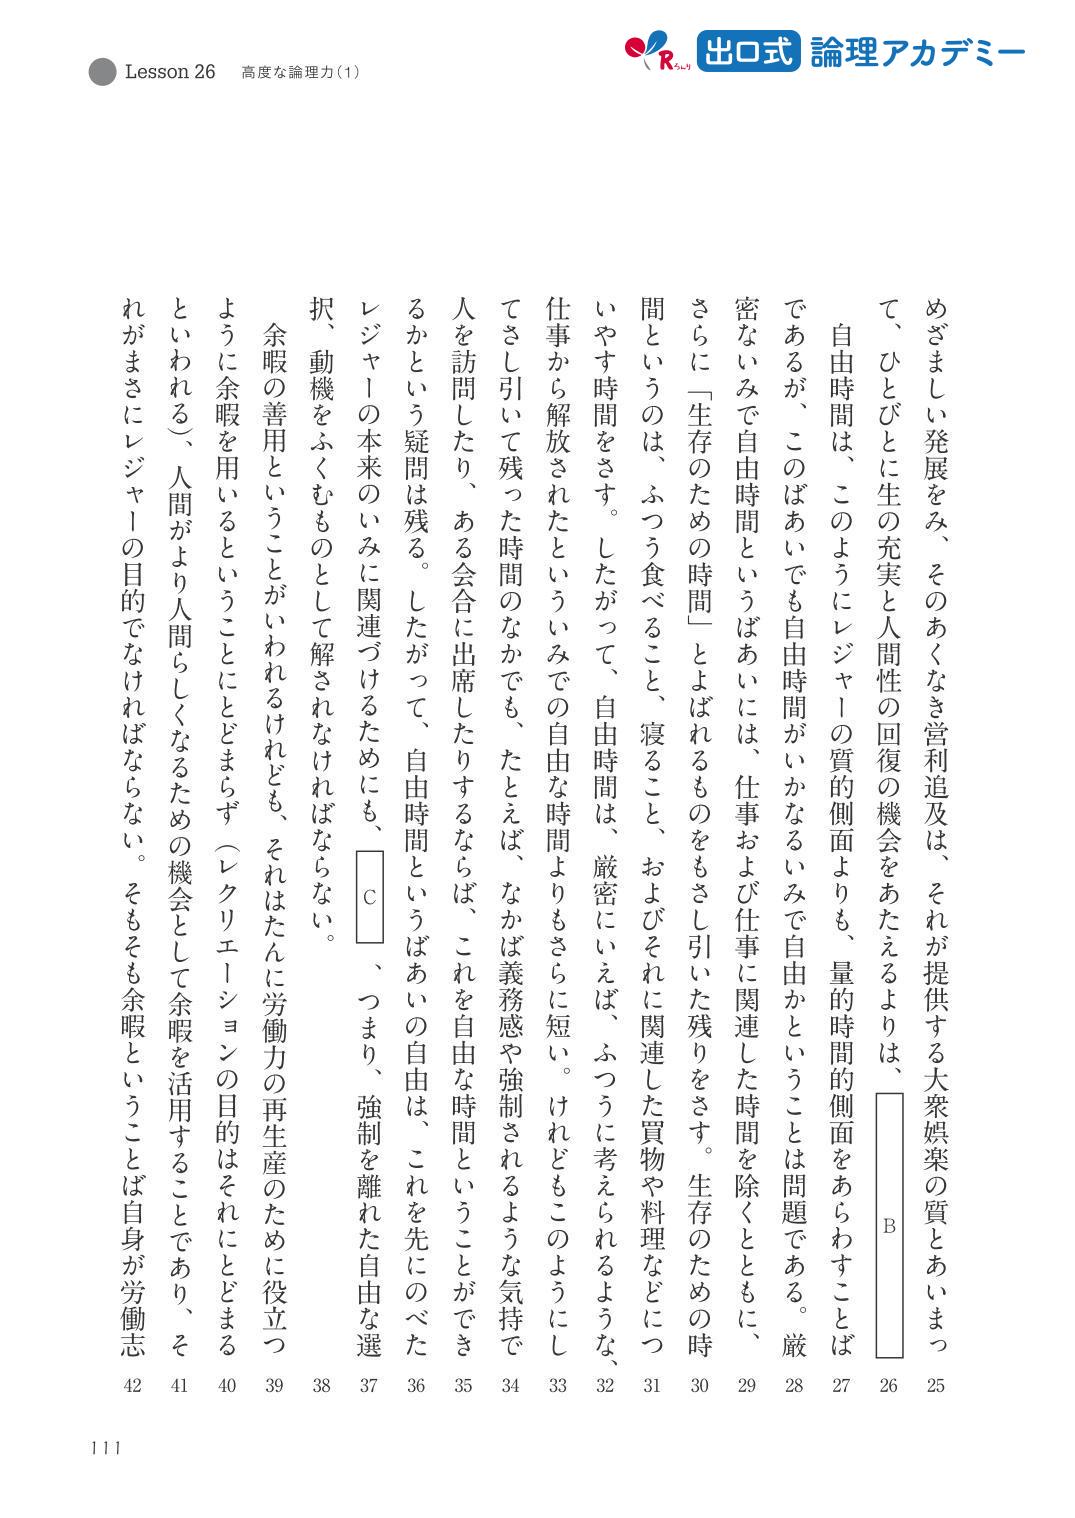 Lesson 26 高度な論理力(1)
Rろんり 出口式 論理アカデミー
めざましい発展をみ、そのあくなき営利追及は、それが提供する大衆娯楽の質とあいまっ 25
て、ひとびとに生の充実と人間性の回復の機会をあたえるよりは、 B 26
自由時間は、このようにレジャーの質的側面よりも、量的時間的側面をあらわすことば 27
であるが、このばあいでも自由時間がいかなるいみで自由かということは問題である。厳 28
密ないみで自由時間というばあいには、仕事および仕事に関連した時間を除くとともに、 29
さらに「生存のための時間」とよばれるものをもさし引いた残りをさす。生存のための時 30
間というのは、ふつう食べること、寝ること、およびそれに関連した買物や料理などにつ 31
いやす時間をさす。したがって、自由時間は、厳密にいえば、ふつうに考えられるような、 32
仕事から解放されたといういみでの自由な時間よりもさらに短い。けれどもこのようにし 33
てさし引いて残った時間のなかでも、たとえば、なかば義務感や強制されるような気持で 34
人を訪問したり、ある会合に出席したりするならば、これを自由な時間ということができ 35
るかという疑問は残る。したがって、自由時間というばあいの自由は、これを先にのべた 36
レジャーの本来のいみに関連づけるためにも、 C 、つまり、強制を離れた自由な選 37
択、動機をふくむものとして解されなければならない。 38
余暇の善用ということがいわれるけれども、それはたんに労働力の再生産のために役立つ 39
ように余暇を用いるということにとどまらず（レクリエーションの目的はそれにとどまる 40
といわれる）、人間がより人間らしくなるための機会として余暇を活用することであり、そ 41
れがまさにレジャーの目的でなければならない。そもそも余暇ということば自身が労働志 42
111